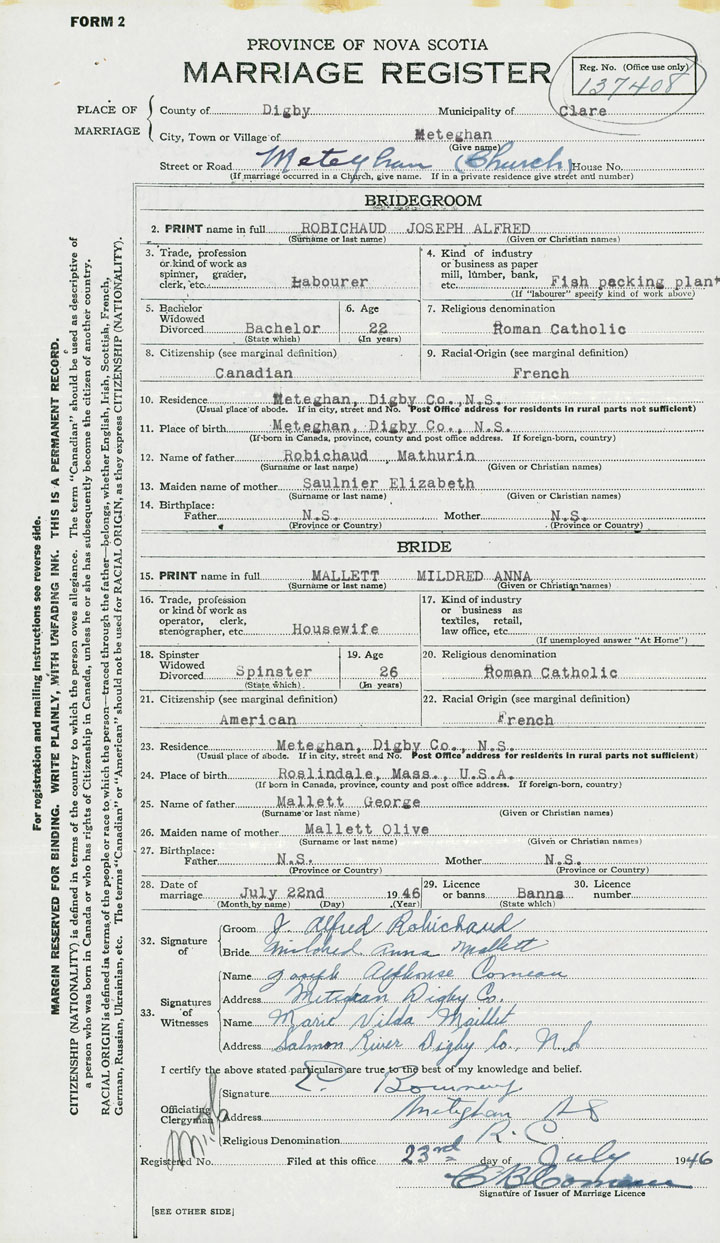 FORM 2
PROVINCE OF NOVA SCOTIA
MARRIAGE REGISTER
Reg. No. (Office use only)
137408
PLACE OF MARRIAGE
County of Digby Municipality of Clare
City, Town or Village of Meteghan
(Give name)
Street or Road Meteghan (Church) House No.
(If marriage occurred in a Church, give name. If in a private residence give street and number)
BRIDEGROOM
2. PRINT name in full ROBICHAUD JOSEPH ALFRED
(Surname or last name) (Given or Christian names)
3. Trade, profession or kind of work as spinner, grader, clerk, etc. Labourer
4. Kind of industry or business as paper mill, lumber, bank, etc. Fish packing plant
(If "labourer" specify kind of work above)
5. Bachelor Widowed Divorced Bachelor
(State which)
6. Age 22
(In years)
7. Religious denomination
Roman Catholic
8. Citizenship (see marginal definition)
Canadian
9. Racial-Origin (see marginal definition)
French
10. Residence Meteghan, Digby Co., N.S.
(Usual place of abode. If in city, street and No. Post Office address for residents in rural parts not sufficient)
11. Place of birth Meteghan, Digby Co., N.S.
(If-born in Canada, province, county and post office address. If foreign-born, country)
12. Name of father Robichaud Mathurin
(Surname or last name) (Given or Christian names)
13. Maiden name of mother Saulnier Elizabeth
(Surname or last name) (Given or Christian names)
14. Birthplace:
Father N.S. Mother N.S.
(Province or Country) (Province or Country)
BRIDE
15. PRINT name in full MALLETT MILDRED ANNA
(Surname or last name) (Given or Christian names)
16. Trade, profession or kind of work as operator, clerk, stenographer, etc. Housewife
17. Kind of industry or business as textiles, retail, law office, etc.
(If unemployed answer "At Home")
18. Spinster Widowed Divorced Spinster
(State which)
19. Age 26
(In years)
20. Religious denomination
Roman Catholic
21. Citizenship (see marginal definition)
American
22. Racial Origin (see marginal definition)
French
23. Residence Meteghan, Digby Co., N.S.
(Usual place of abode. If in city, street and No. Post Office address for residents in rural parts not sufficient)
24. Place of birth Roslindale, Mass., U.S.A.
(If born in Canada, province, county and post office address. If foreign-born, country)
25. Name of father Mallett George
(Surname or last name) (Given or Christian names)
26. Maiden name of mother Mallett Olive
(Surname or last name) (Given or Christian names)
27. Birthplace:
Father N.S. Mother N.S.
(Province or Country) (Province or Country)
28. Date of marriage July 22nd 1946
(Month by name) (Day) (Year)
29. Licence or banns Banns
(State which)
30. Licence number
32. Signature of
Groom J. Alfred Robichaud
Bride Mildred Anna Mallett
33. Signatures of Witnesses
Name Joseph Alphonse Comeau
Address Meteghan Digby Co.
Name Marie Vilda Maillet
Address Salmon River Digby Co., N.S
I certify the above stated particulars are true to the best of my knowledge and belief.
Officiating Clergyman
Signature
Address Meteghan NS
Religious Denomination R.C.
Registered No. Filed at this office 23rd day of July 1946
Signature of Issuer of Marriage Licence
[SEE OTHER SIDE]
For registration and mailing instructions see reverse side.
MARGIN RESERVED FOR BINDING. WRITE PLAINLY, WITH UNFADING INK. THIS IS A PERMANENT RECORD.
CITIZENSHIP (NATIONALITY) is defined in terms of the country to which the person owes allegiance. The term "Canadian" should be used as descriptive of
a person who was born in Canada or who has rights of Citizenship in Canada, unless he or she has subsequently become the citizen of another country.
RACIAL ORIGIN is defined in terms of the people or race to which the person—traced through the father—belongs, whether English, Irish, Scottish, French,
German, Russian, Ukrainian, etc. The terms "Canadian" or "American" should not be used for RACIAL ORIGIN, as they express CITIZENSHIP (NATIONALITY).